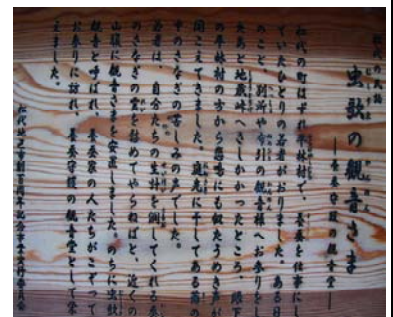 松代の民話
虫歌の観音さま
―養蚕守護の観音堂―
松代の町はずれ平林村で、養蚕を仕事にし
ていたひとりの若者がおりました。ある日
のこと、別所や布引の観音様へお参りをし
たあと地蔵峠へさしかかったところ、眼下
の平林村の方から悲鳴にも似たうめき声が
聞こえてきました。庭先に干してある繭の
中のさなぎの苦しみの声でした。
若者は、自分たちの生計を潤してくれる蚕
のさなぎの霊を慰めてやらねばと、近くの
山腹に観音さまを安置しました。のちに虫歌
観音と呼ばれ、養蚕家の人たちがこぞって
お参りに訪れ、養蚕守護の観音堂として栄
えました。